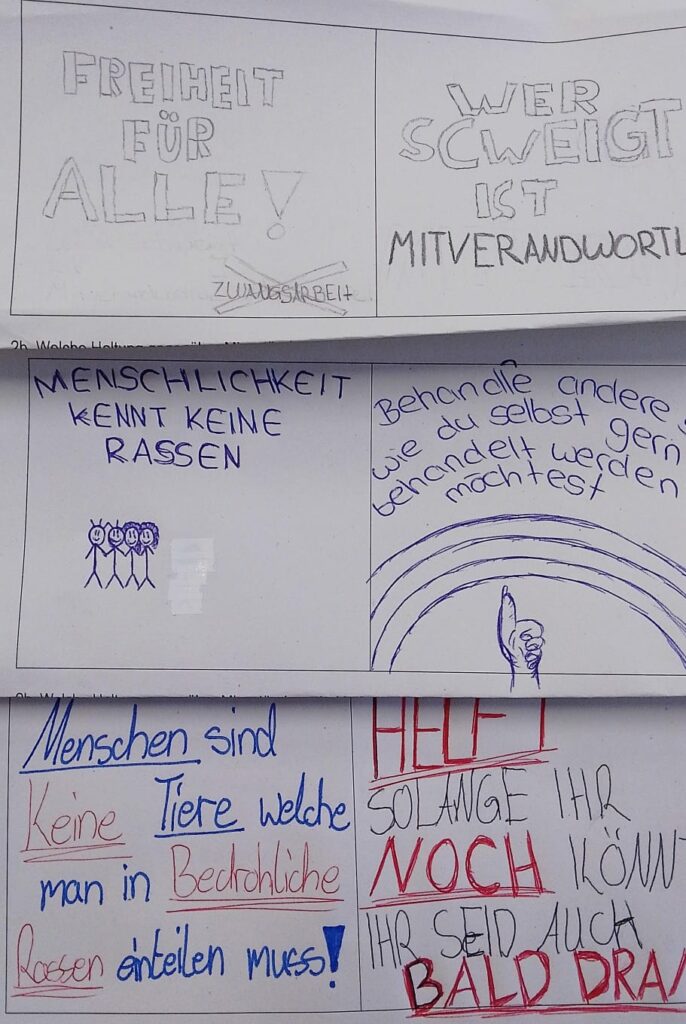 FREIHEIT
FÜR
ALLE!
ZWANGSARBEIT
WER
SCWEIGT
IST
MITVERANDWORTL
2b. Welche Haltung
MENSCHLICHKEIT
KENNT KEINE
RASSEN
Behandle andere
wie du selbst gern
behandelt werden
möchtest
Menschen sind
Keine Tiere welche
man in Bedrohliche
Rassen einteilen muss!
HELFT
SOLANGE IHR
NOCH KÖNNT
IHR SEID AUCH
BALD DRAN